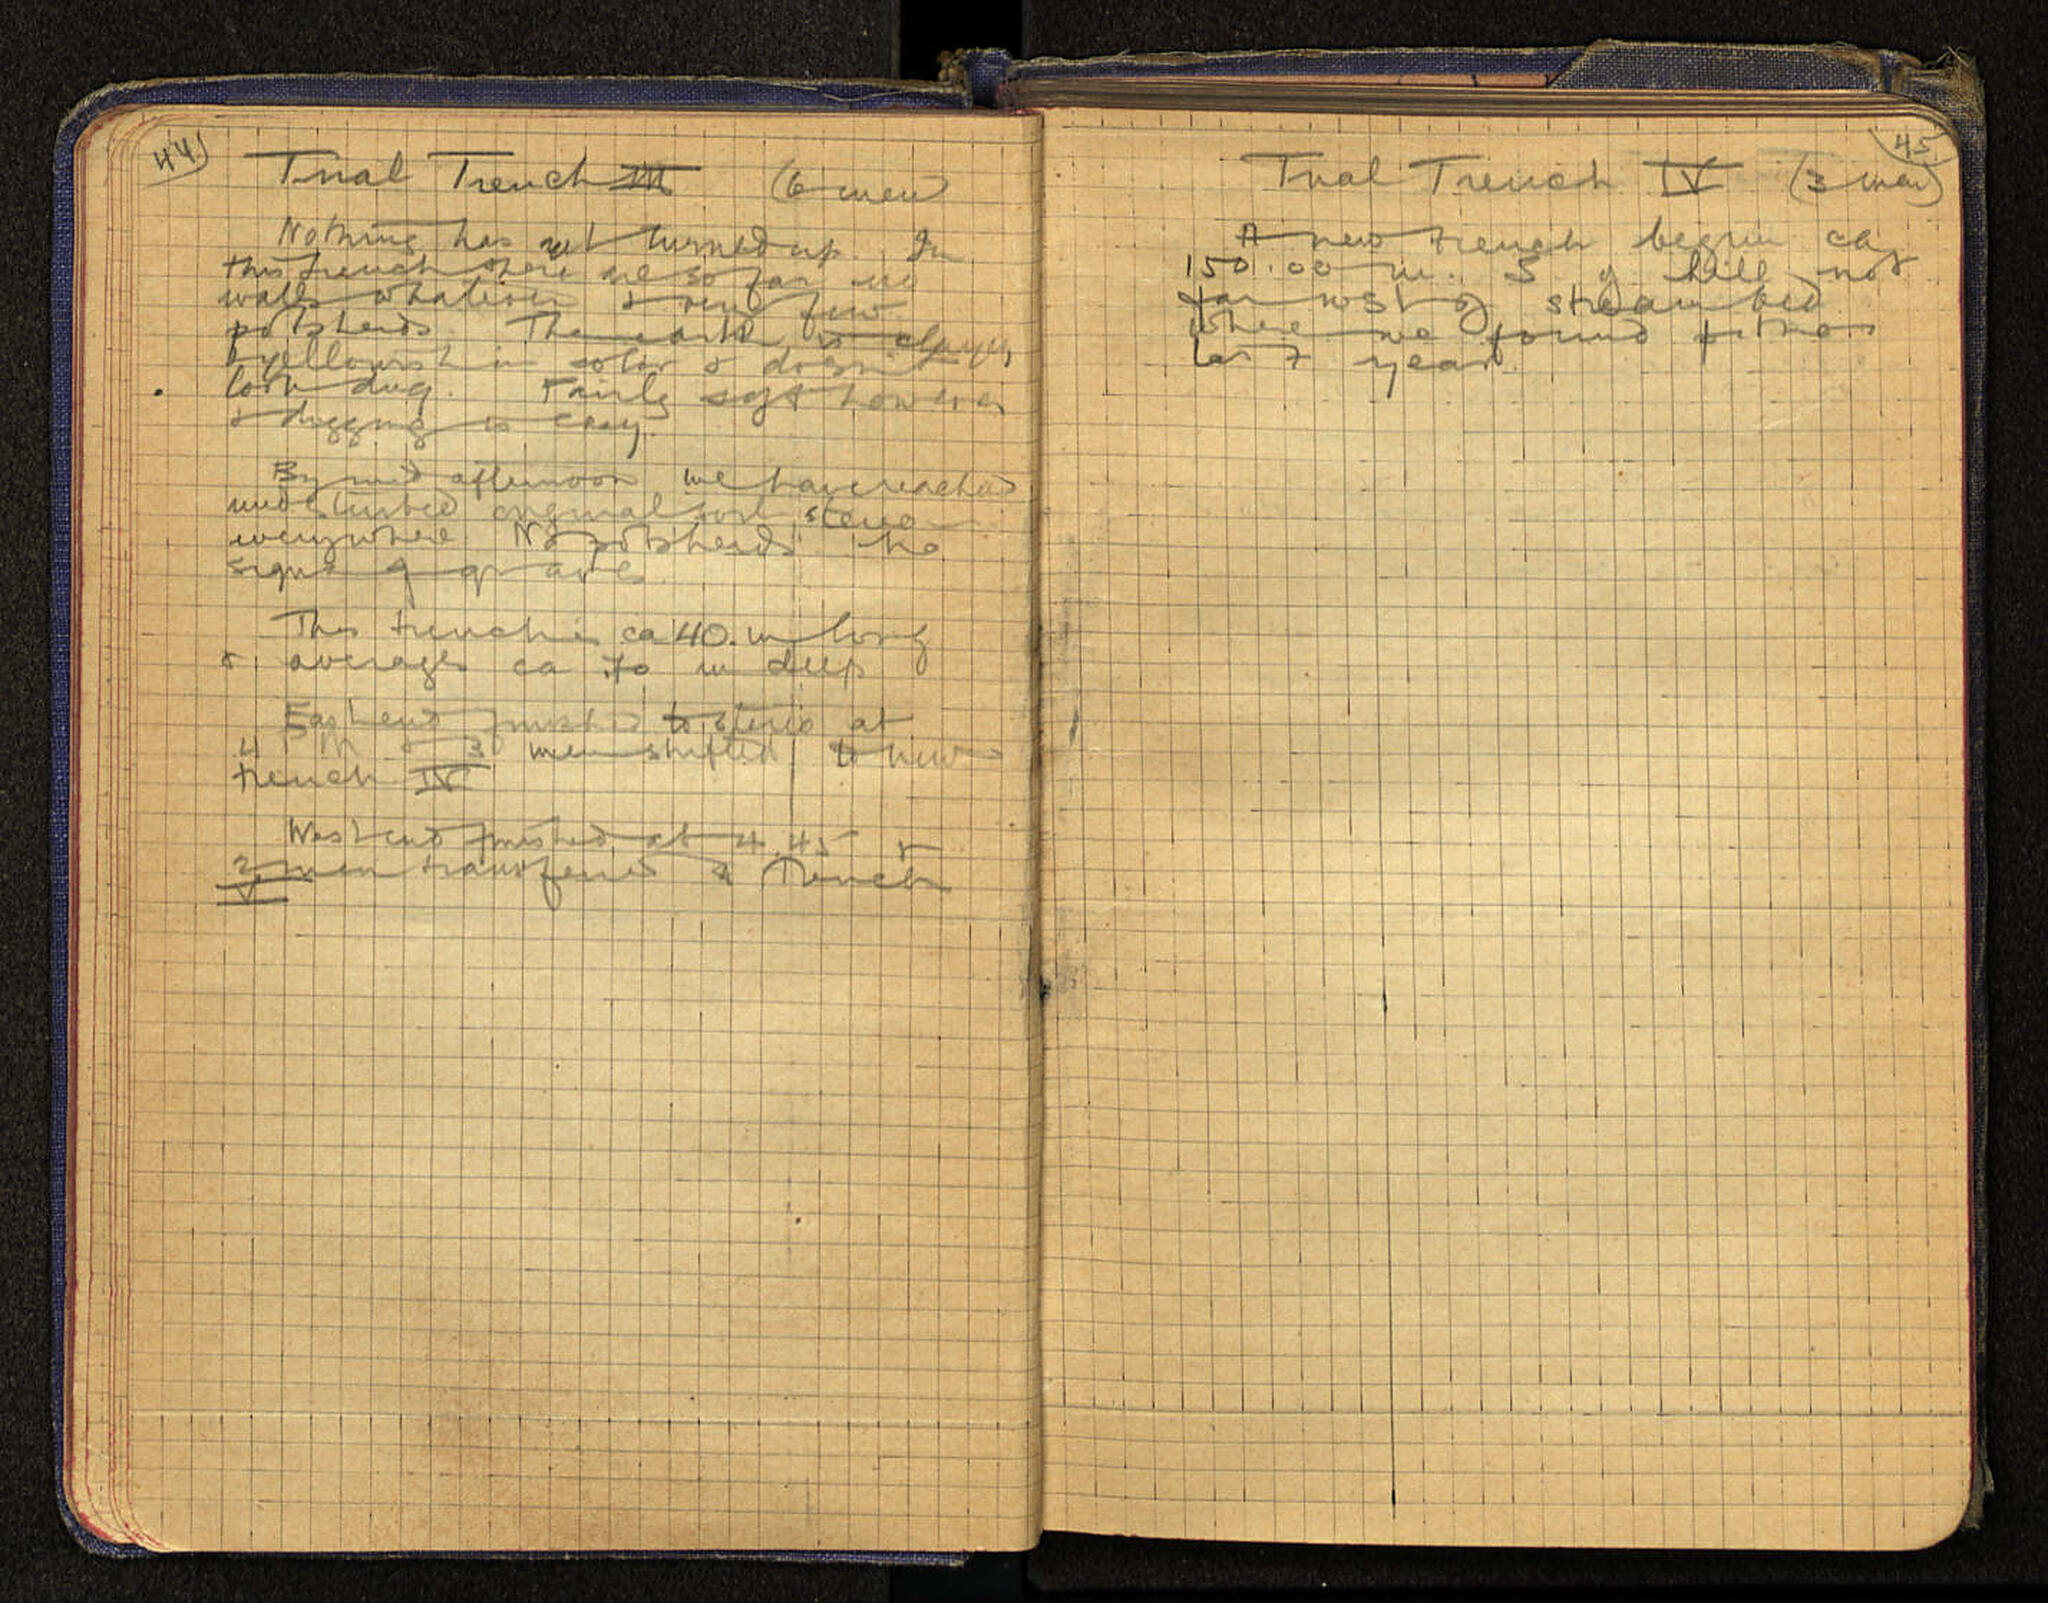 44)
Trial Trench III (6 men
Nothing has yet turned up. In
this trench there are so far no
walls whatever & very few
potsherds. The earth is clayey,
yellowish in color & doesn't
look dug. Fairly soft however
& digging is easy.
By mid afternoon we have reached
undisturbed original soil, stereo
everywhere. No potsherds no
signs of graves.
This trench is ca 40. m long
& averages ca .70 m deep
East end finished to stereo at
4 3 men shifted to new
trench IV
West end finished at 4.45 &
3 men transferred to Trench
V
45.
Trial Trench IV (3 men)
A new trench begun ca
150.00 m. S of hill not
far west of stream bed
where we found pithos
last year.